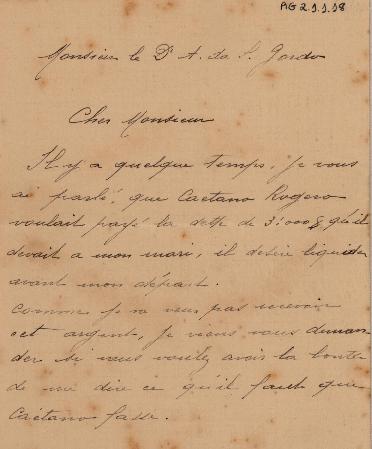 AG 2.1.1.18
Monsieur le Dr A. da S. Gordo
Cher Monsieur
Il y a quelque temps, je vous
ai parlé, que Caetano Rogero
voulait payé la dette de 3:000$ qu'il
devait a mon mari, il desire liquider
avant mon départ.
comme je ne veux pas recevoir
cet argent, je viens vous deman-
der si vous voulez avoir la bonté
de me dire ce qu'il faut que
Caetano fasse.